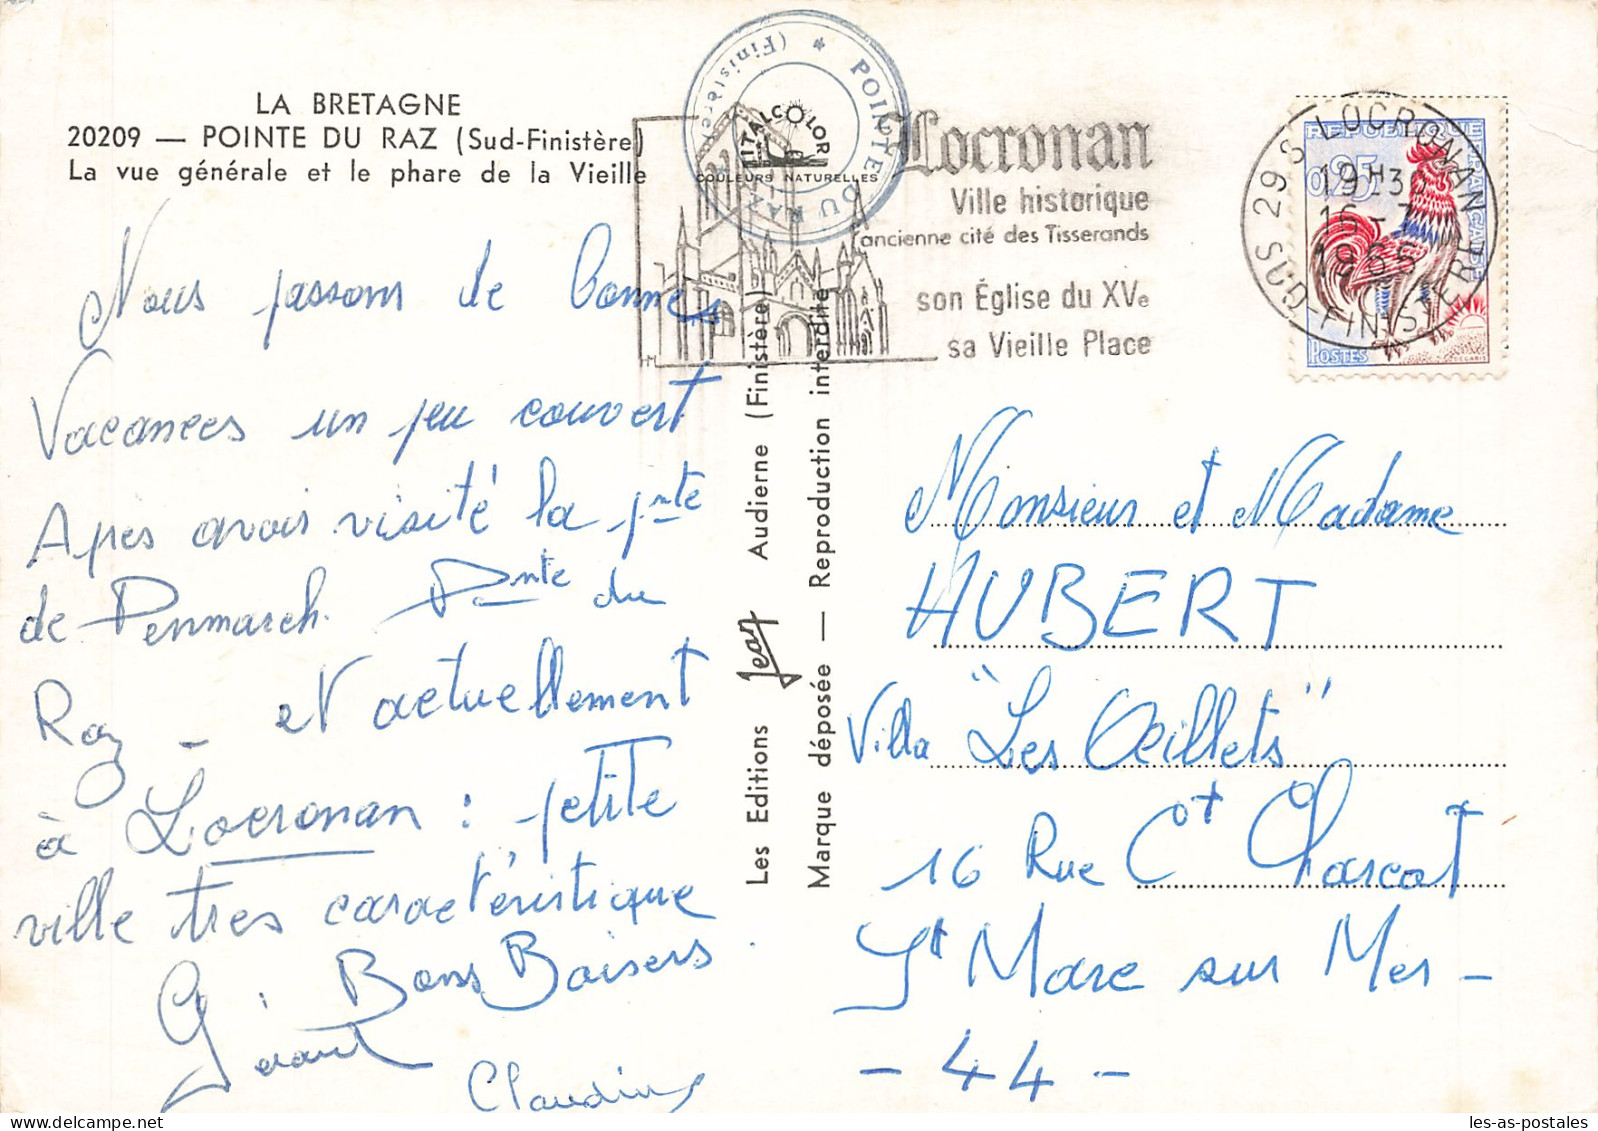 LA BRETAGNE
20209 — POINTE DU RAZ (Sud-Finistère)
La vue générale et le phare de la Vieille
* POINTE DU RAZ (Finistère)
ITALCOLOR
COULEURS NATURELLES
Locronan
Ville historique
ancienne cité des Tisserands
son Église du XVe
sa Vieille Place
HM
29 S LOCRONAN
19H30
16-7
1965
SUD-FINISTERE
REPUBLIQUE
FRANCAISE
0,25
POSTES
DECARIS
Nous passons de bonnes
Vacances un peu couvert
Apres avoir visité la pnte
de Penmarch. Pnte du
Raz - et actuellement
à Locronan : petite
ville tres caractéristique
Bons Baisers
Gérard
Claudine
Les Editions Jean Audierne (Finistère)
Marque déposée — Reproduction interdite
Monsieur et Madame
HUBERT
Villa "Les Œillets"
16 Rue Ct Charcot
St Marc sur Mer -
- 44 -
les-as-postales